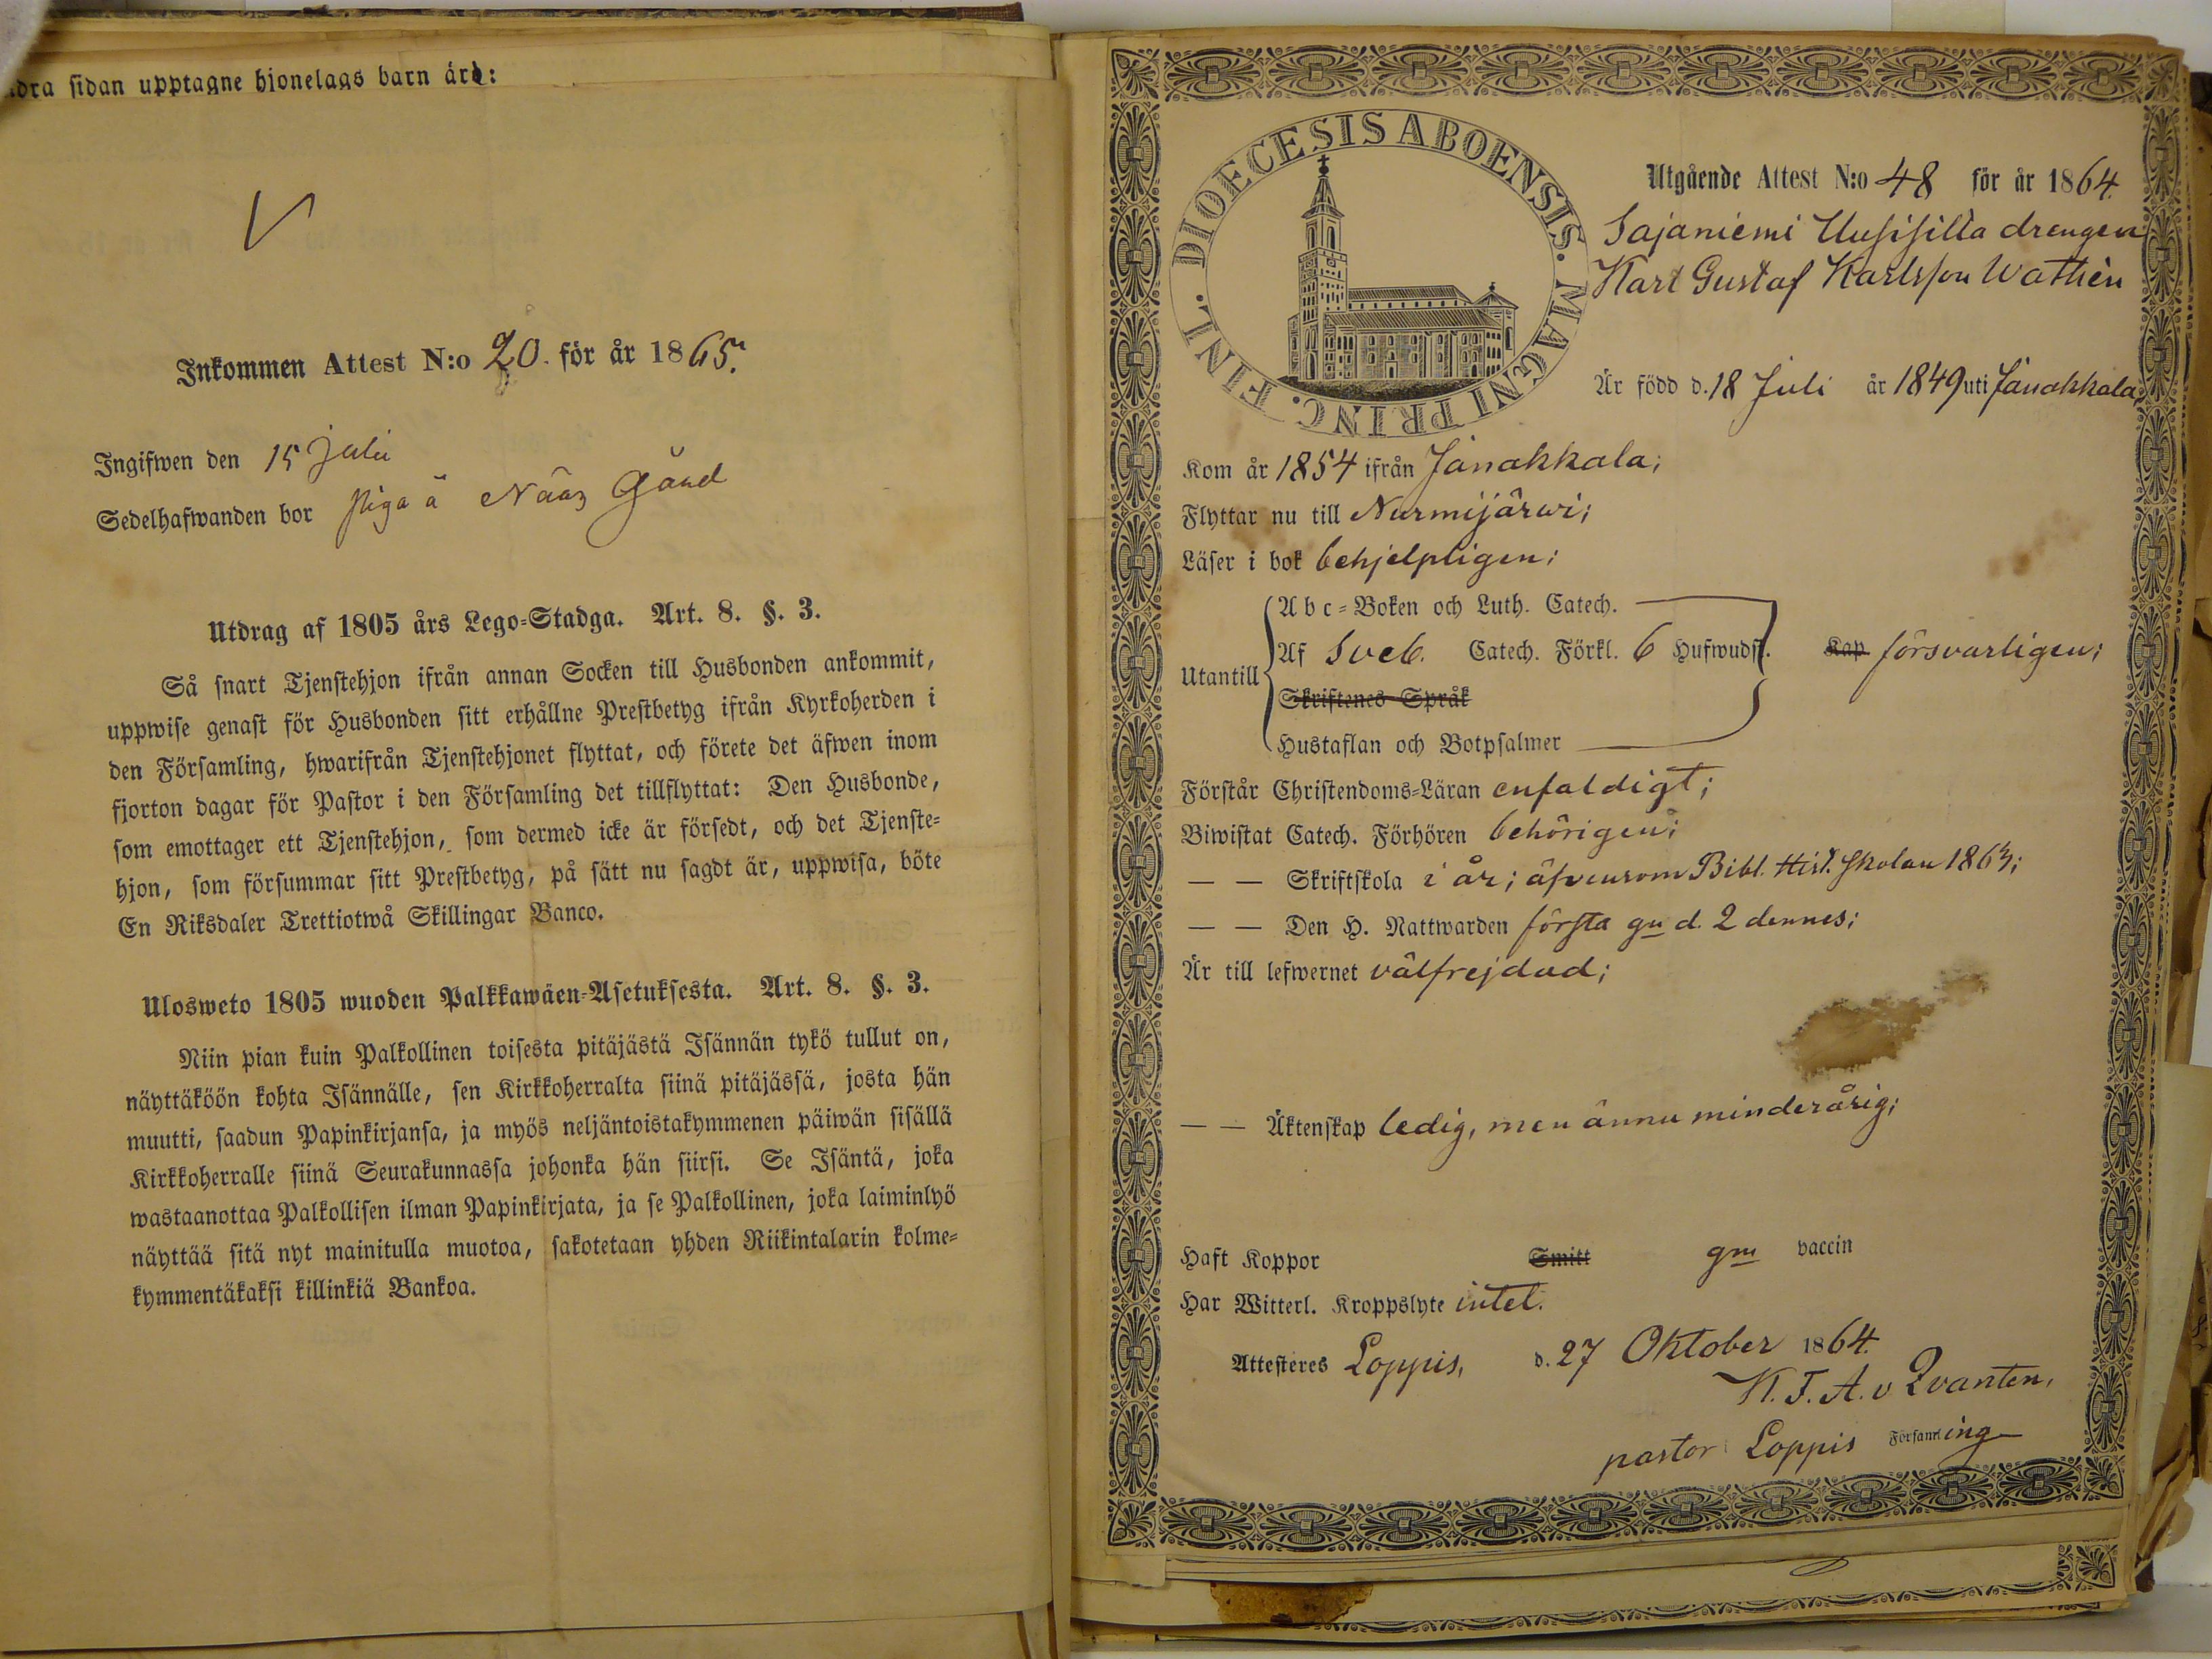 dra sidan upptagne hjonelags barn äro:
Inkommen Attest N:o 20. för år 1865.
Ingifwen den 15 Julii
Sedelhafwanden bor piga å Nääs Gård
Utdrag af 1805 års Lego-Stadga. Art. 8. §. 3.
Så snart Tjenstehjon ifrån annan Socken till Husbonden ankommit,
uppwise genast för Husbonden sitt erhållne Prestbetyg ifrån Kyrkoherden i
den Församling, hwarifrån Tjenstehjonet flyttat, och förete det äfwen inom
fjorton dagar för Pastor i den Församling det tillflyttat: Den Husbonde,
som emottager ett Tjenstehjon, som dermed icke är försedt, och det Tjenste-
hjon, som försummar sitt Prestbetyg, på sätt nu sagdt är, uppwisa, böte
En Riksdaler Trettiotwå Skillingar Banco.
Ulosweto 1805 wuoden Palkkawäen-Asetuksesta. Art. 8. §. 3.
Niin pian kuin Palkollinen toisesta pitäjästä Isännän tykö tullut on,
näyttäköön kohta Isännälle, sen Kirkkoherralta siinä pitäjässä, josta hän
muutti, saadun Papinkirjansa, ja myös neljäntoistakymmenen päiwän sisällä
Kirkkoherralle siinä Seurakunnassa johonka hän siirsi. Se Isäntä, joka
wastaanottaa Palkollisen ilman Papinkirjata, ja se Palkollinen, joka laiminlyö
näyttää sitä nyt mainitulla muotoa, sakotetaan yhden Riikintalarin kolme-
kymmentäkaksi killinkiä Bankoa.
DIOECESIS ABOENSIS. MAGNI PRINC. FINL.
Utgående Attest N:o 48 för år 1864.
Sajaniemi Uusisilta drengen
Karl Gustaf Karlsson Wathén
Är född d. 18 Juli år 1849 uti Janakkala;
Kom år 1854 ifrån Janakkala;
Flyttar nu till Nurmijärwi;
Läser i bok behjelpligen;
Abc-Boken och Luth. Catech.
Utantill Af Sveb. Catech. Förkl. 6 Hufwudst. Kap försvarligen;
Skriftenes Språk
Hustaflan och Botpsalmer
Förstår Christendoms-Läran enfaldigt;
Biwistat Catech. Förhören behörigen;
— — Skriftskola i år; äfvensom Bibl. Hist. skolan 1863;
— — Den H. Nattwarden första gn d. 2 dennes;
Är till lefwernet välfrejdad;
— — Äktenskap ledig, men ännu minderårig;
Haft Koppor Smitt gm vaccin
Har Witterl. Kroppslyte intet.
Attesteres Loppis, d. 27 Oktober 1864.
K. F. A. v Qvanten,
pastor i Loppis Församling